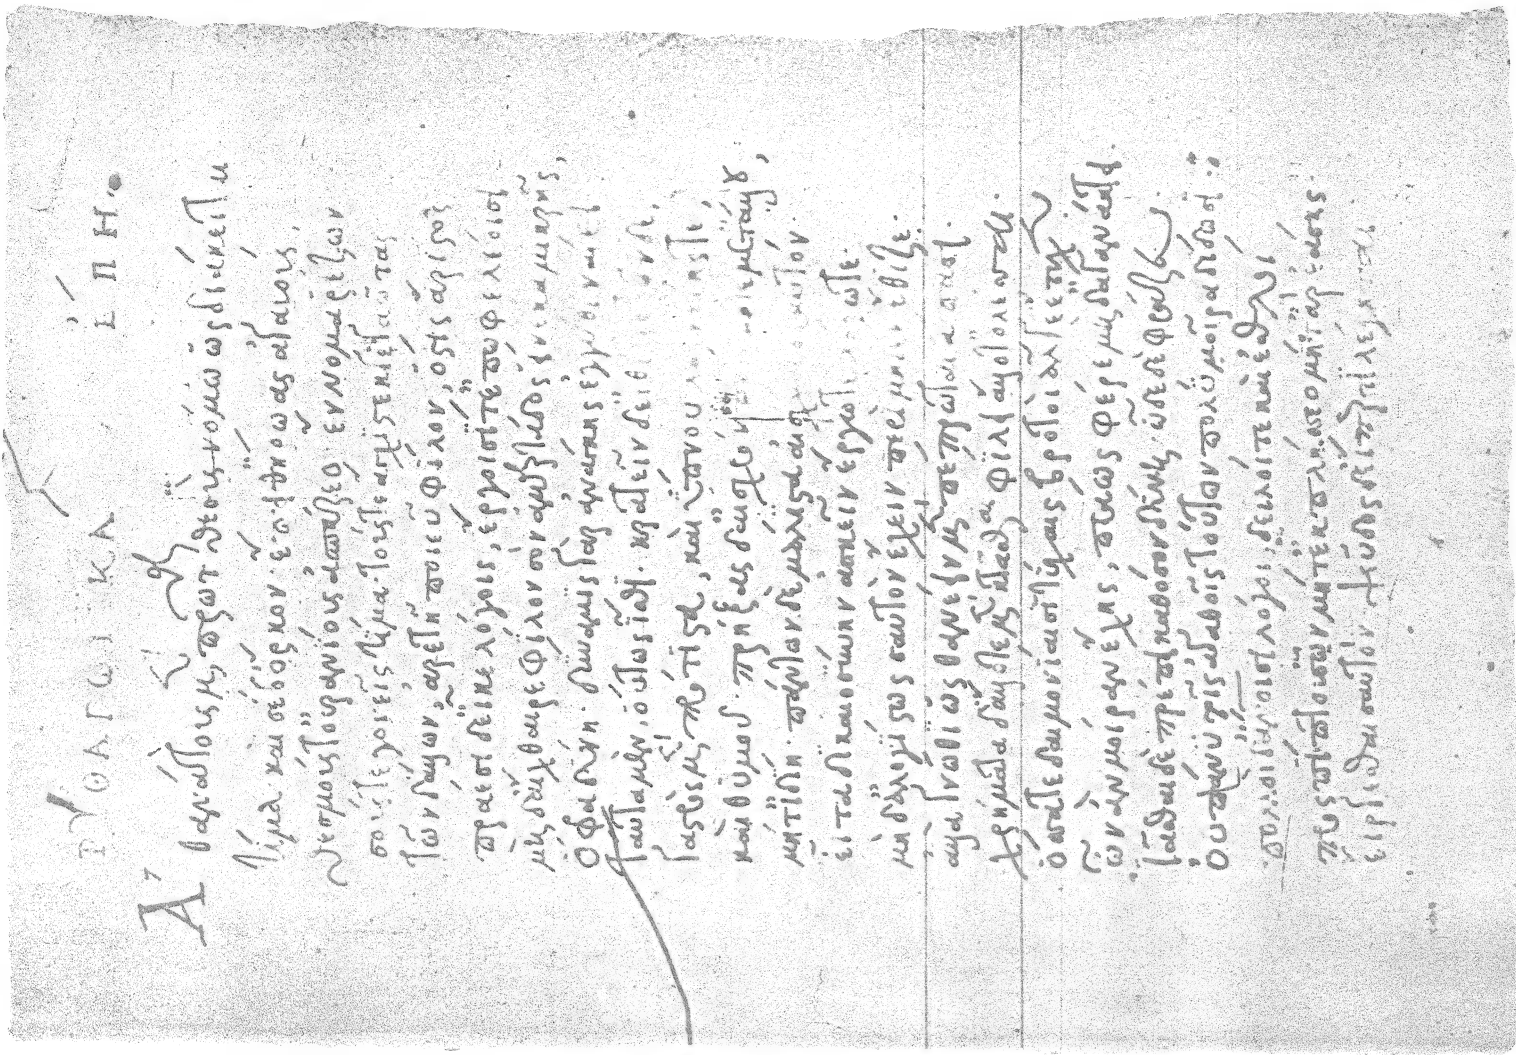 ΠΥΘΑΓΩΙΚΑ ἜΠΗ.
Ἀθανάτους μὲν πρῶτα θεούς νόμωι ὡς διάκειται
τίμα καὶ σέβου ὅρκον. ἔπειθ' ἥρωας ἀγαυούς,
ἔννομα ῥέζων
σούς τε γονεῖς τίμα τούς τ' ἄγχιστ' ἐκγεγαῶτας
τῶν δ' ἄλλων ἀρετῆ ποιεῦ φίλον, ὅστις ἄριστος
πραέσι δ' εἶκε λόγοις, ἔργοισί τ' ἐπωφελίμοισι
μηδ' ἔχθαιρε φίλον σὸν ἁμαρτάδος εἵνεκα μικρῆς,
ὄφρα δύνη. δύναμις γὰρ ἀνάγκης ἐγγύθι ναίει
ταῦτα μὲν, οὕτως ἴσθι. κρατεῖν δ' εἰθίζεο τῶνδε.
γαστρὸς μὲν πρώτιστα, καὶ ὕπνου λαγνείης τε
καὶ θυμοῦ. πρήξεις δ' αἰσχρόν ποτε μετ' ἄλλου,
μήτ' ἰδίη. πάντων δὲ μάλιστα αἰσχύνεο σαυτόν.
εἶτα δικαιοσύνην ἀσκεῖν ἔργω τε λόγω τε.
μηδ' ἀλογίστως σαυτὸν ἔχειν περὶ μηδὲν ἔθιζε.
ἀλλὰ γνῶθι ὡς θανέειν πέπρωται ἅπασι.
χρήματα δ' ἄλλοτε μὲν κτᾶσθαι φιλεῖ ἄλλοτ' ὀλέσσαι.
ὅσσα τε δαιμονίαισι τύχαις βροτοὶ ἄλγε' ἔχουσιν
ὧν ἂν μοῖραν ἔχης, πράως φέρε μηδ' ἀγανάκτει.
ἰᾶσθαι δὲ πρέπει καθόσον δύνη, ὧδε δὲ φράζευ.
οὐ πάνυ τοῖς ἀγαθοῖς τούτων πολὺ μοῖρα δίδωσι:
λόγοι, δειλοί τε καὶ ἐσθλοί
προσπίπτουσ' ὧν μήτ' ἐκπλήσσεο μήτ' ἄρ' ἐάσης.
εἴργεσθαι σαυτόν ψεῦδος δ' ἤν πέρ τι λέγηται.